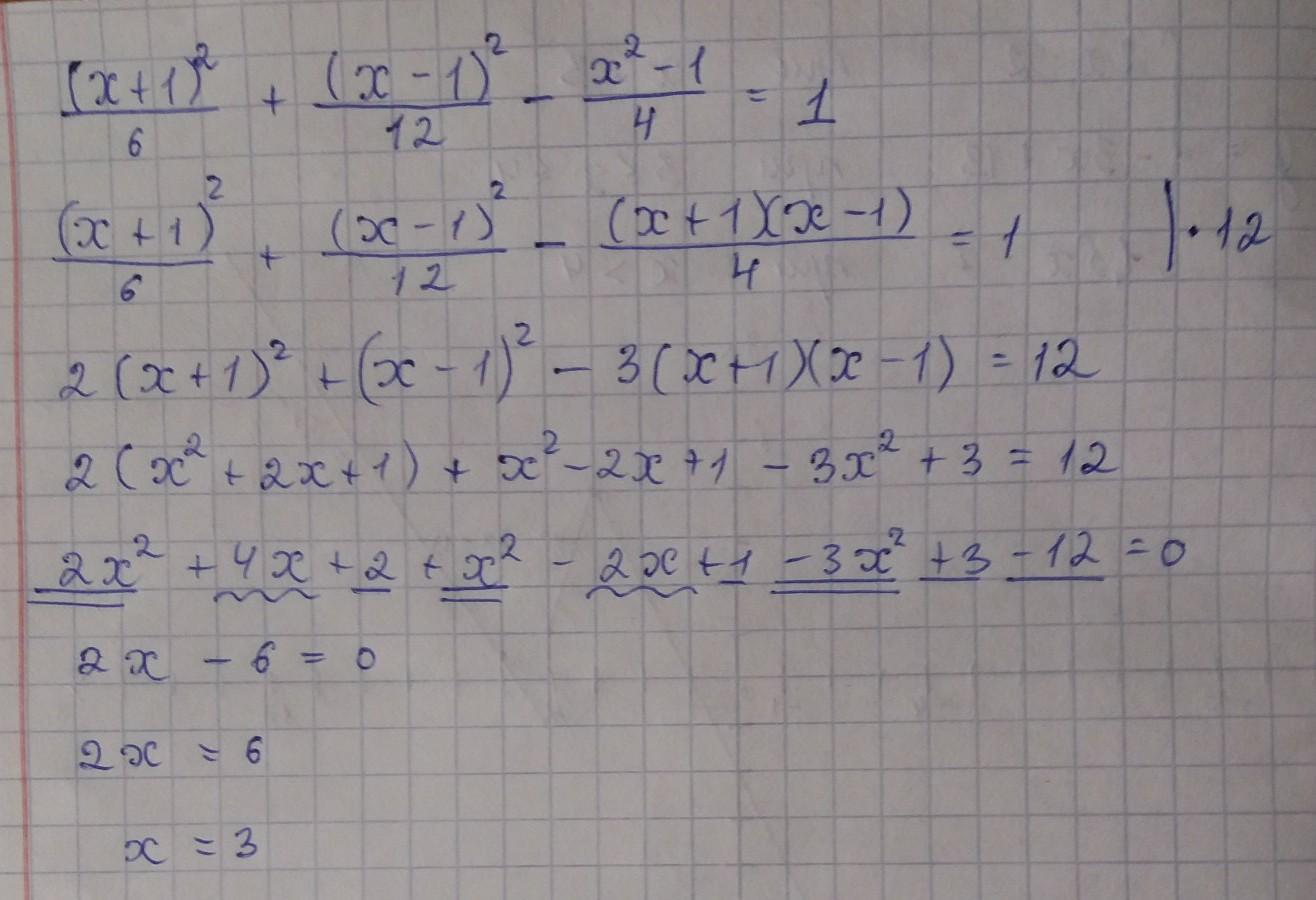 (x+1)²/6 + (x-1)²/12 - x²-1/4 = 1
(x+1)²/6 + (x-1)²/12 - (x+1)(x-1)/4 = 1 |·12
2(x+1)² + (x-1)² - 3(x+1)(x-1) = 12
2(x²+2x+1) + x²-2x+1 - 3x²+3 = 12
2x² + 4x + 2 + x² - 2x + 1 - 3x² + 3 - 12 = 0
2x - 6 = 0
2x = 6
x = 3